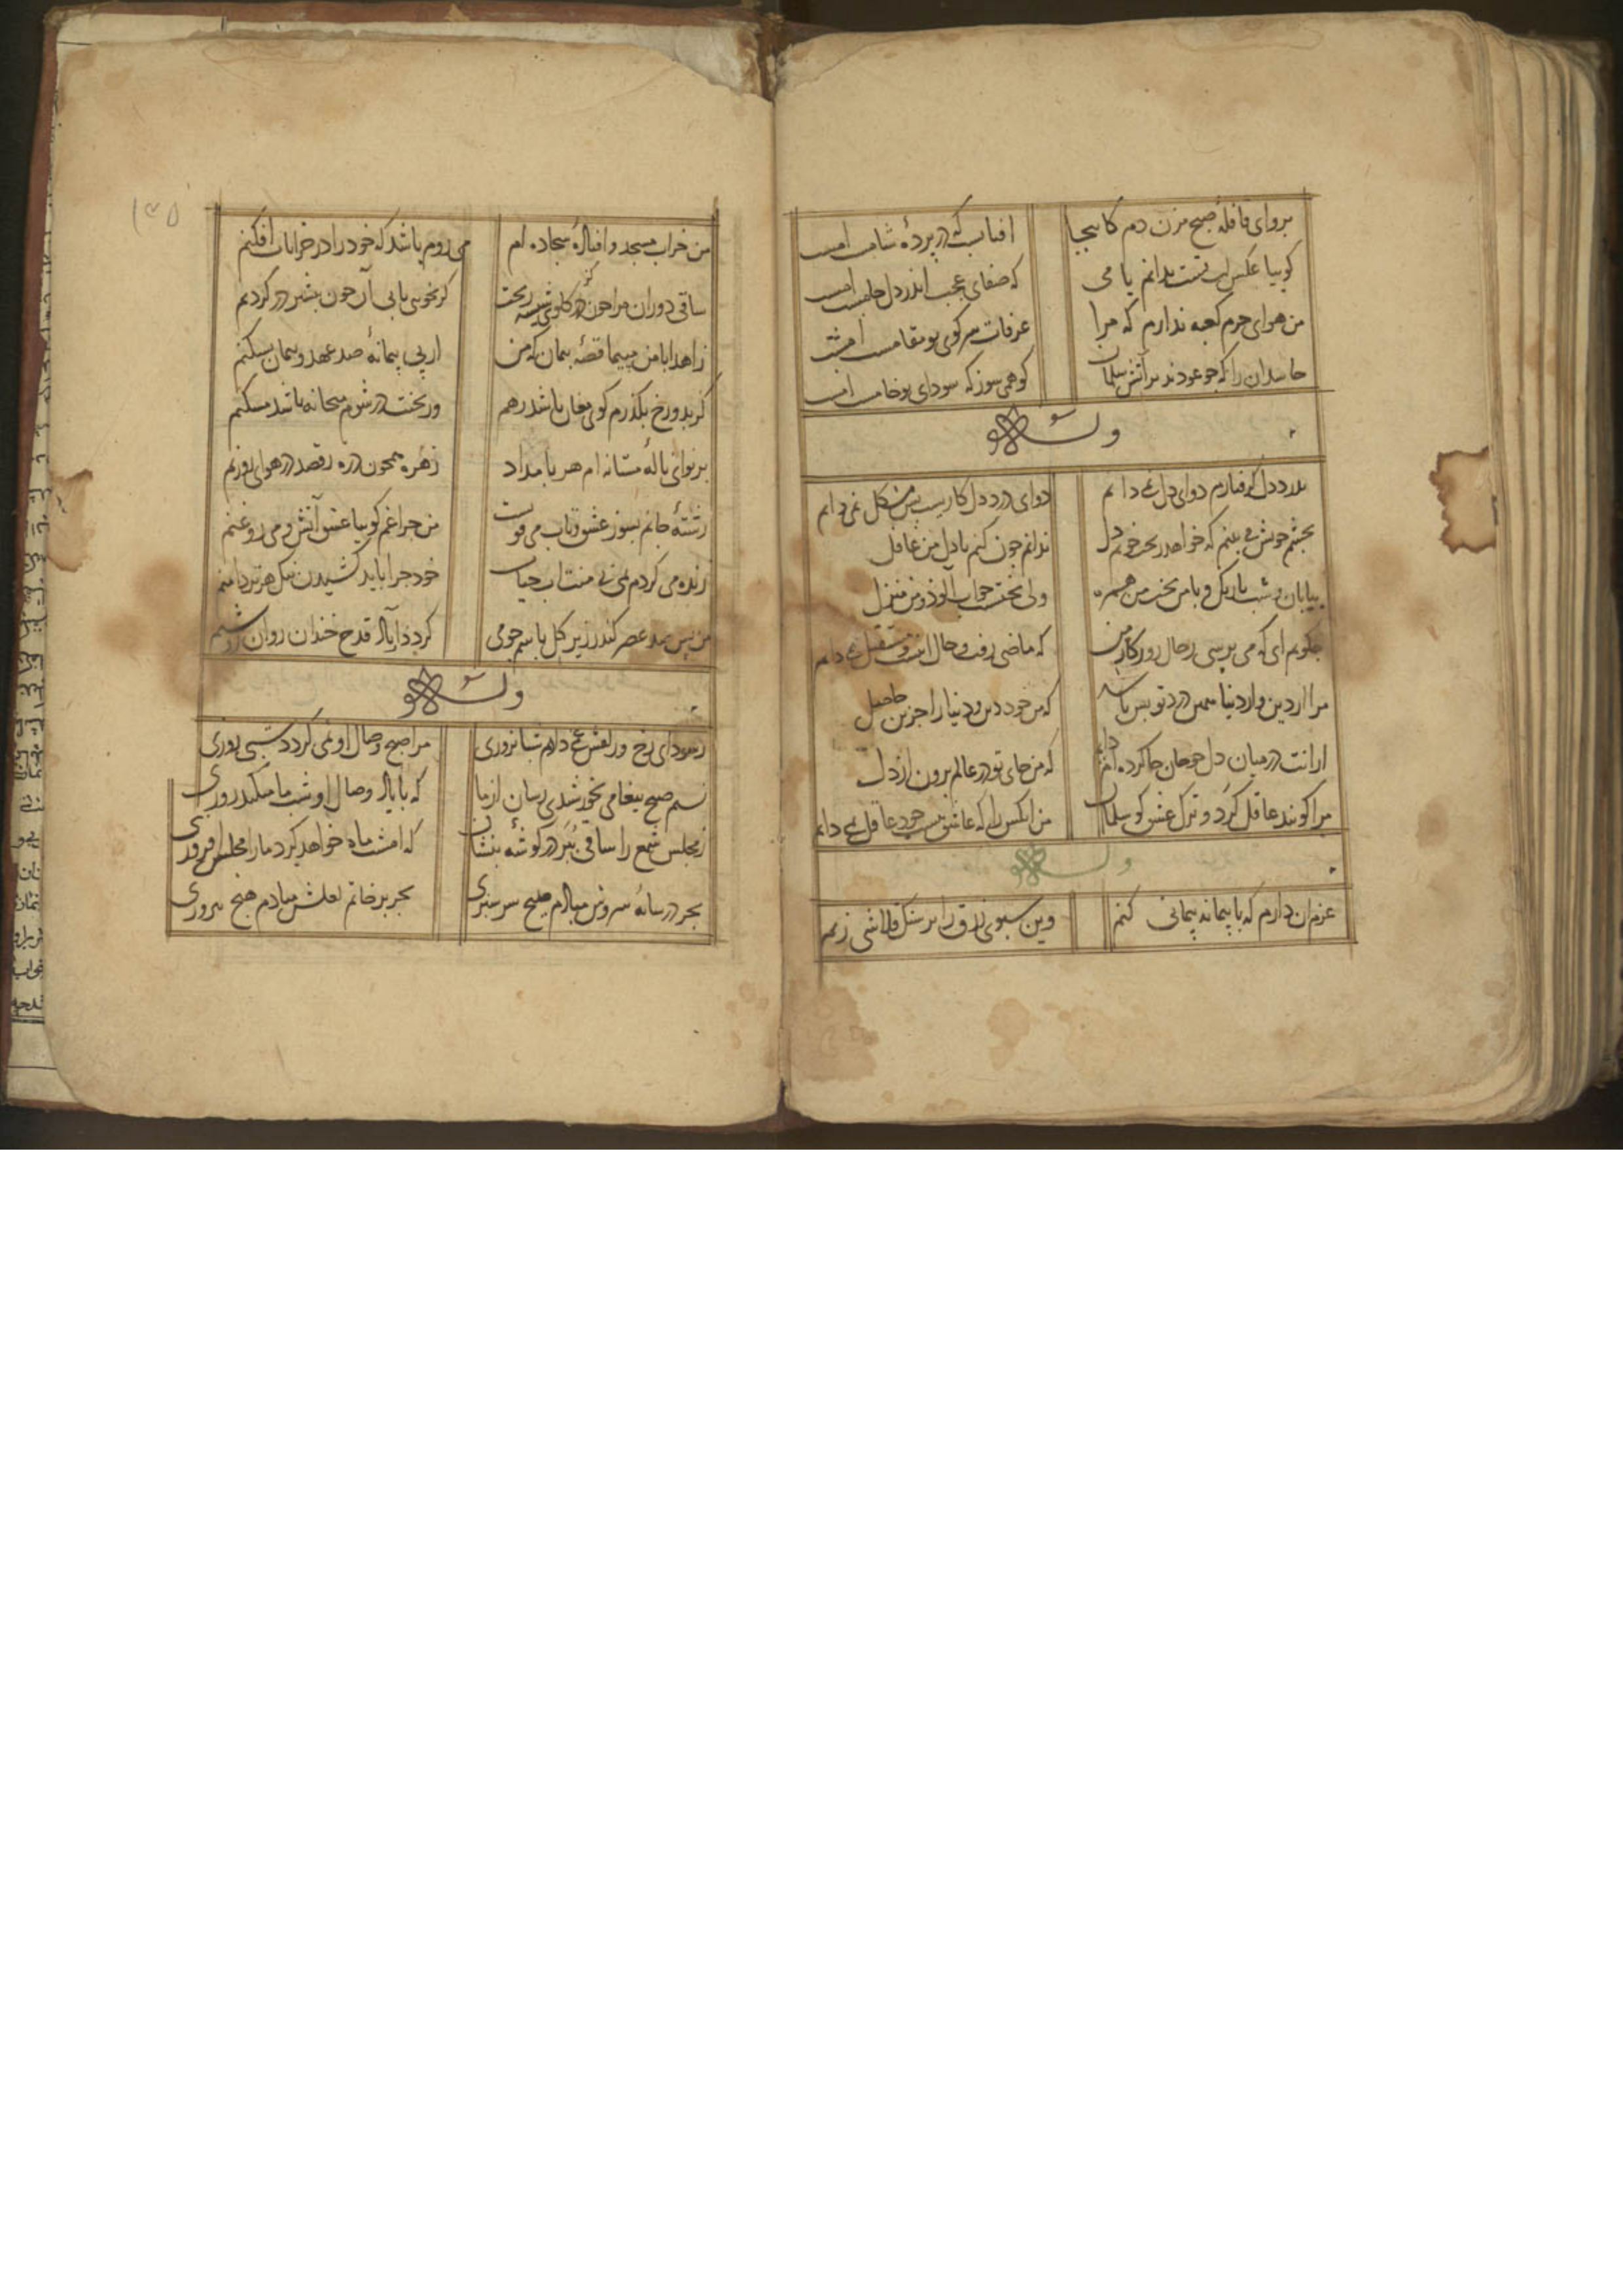 برو ای قافله صبح مزن دم کاینجا
افتابیست که در پرده شامست امشب
کوییا عکس لب تست ندانم یا می
که صفای عجب اندر دل جامست امشب
من هوای حرم کعبه ندارم که مرا
عرفات سر کوی تو مقامست امشب
حاسدان را که جو عودند بر آتش سلمان
کو همی سوز که سودای تو خامست امشب
وله
بدرد دل کرفتارم دوای دل نمی دانم
دوای درد دل کاریست بس مشکل نمی دانم
بجشم خویش می بینم که خواهد ریخت خونم دل
ندانم جون کنم با دل من غافل
بیابان و شب تاریک و با من بخت من همره
ولی بختست خواب آلود و من منزل
جکویم ای که می پرسی ز حال روزکار من
که ماضی رفت و حال اینست و مستقبل نمی دانم
مرا از دین و از دنیا همین درد تو بس باشد
که من خود دین و دنیا را جز این حاصل
ترا نت در میان دل جو جان جا کرده ام دایم
که من جای تو در عالم برون از دل
مرا کویند عاقل کرد و ترک عشق کو سلمان
من انکس را که عاشق نیست خود عاقل نمی دانم
وله
عزم ان دارم که با پیمانه پیمانی کنم
وین سبوی زرق را بر سنک قلاشی زنم
۱۳۵
من خراب مسجد و افتاده سجاده ام
می روم باشد که خود را در خرابات افکنم
ساقی دوران مرا خون در کلوی شیشه ریخت
کر نخوی بابی آن خون بشیر در کردنم
زاهدا با من مپیما قصه پیمان که من
از پی پیمانه صد عهد و پیمان بشکنم
کر بدوزخ بکذرم کوی مغان باشد رهم
ور بجنت در شوم میخانه باشد مسکنم
بر نوای ناله مستانه ام هر بامداد
زهره همچون ذره رقصد در هوای روزنم
رشته جانم بسوز عشق و تاب می فروخت
من جراغم کوییا عشق آتش و می روغنم
زنده می کردم بمی بی منت آب حیات
خود جرا باید کشیدن ننک هر تر دامنم
من پس صد عصر کند ر زیر کل با سر جو می
کردد از یاد قدح خندان روان روشنم
وله
ز سودای رخ و زلفش غمی دارم شبانروزی
مرا صبح وصال او نمی کردد شبی روزی
نسیم صبح پیغامی بخورشیدی رسان از ما
که با یاد وصال او شب ما میکند روزی
ز مجلس شمع را ساقی ببر در کوشه بنشان
که امشب ماه خواهد کرد ما را مجلس افروزی
بجز در سایه سروش مبادم هیچ سرسبزی
بجز بر خاتم لعلش مبادم هیچ پیروزی